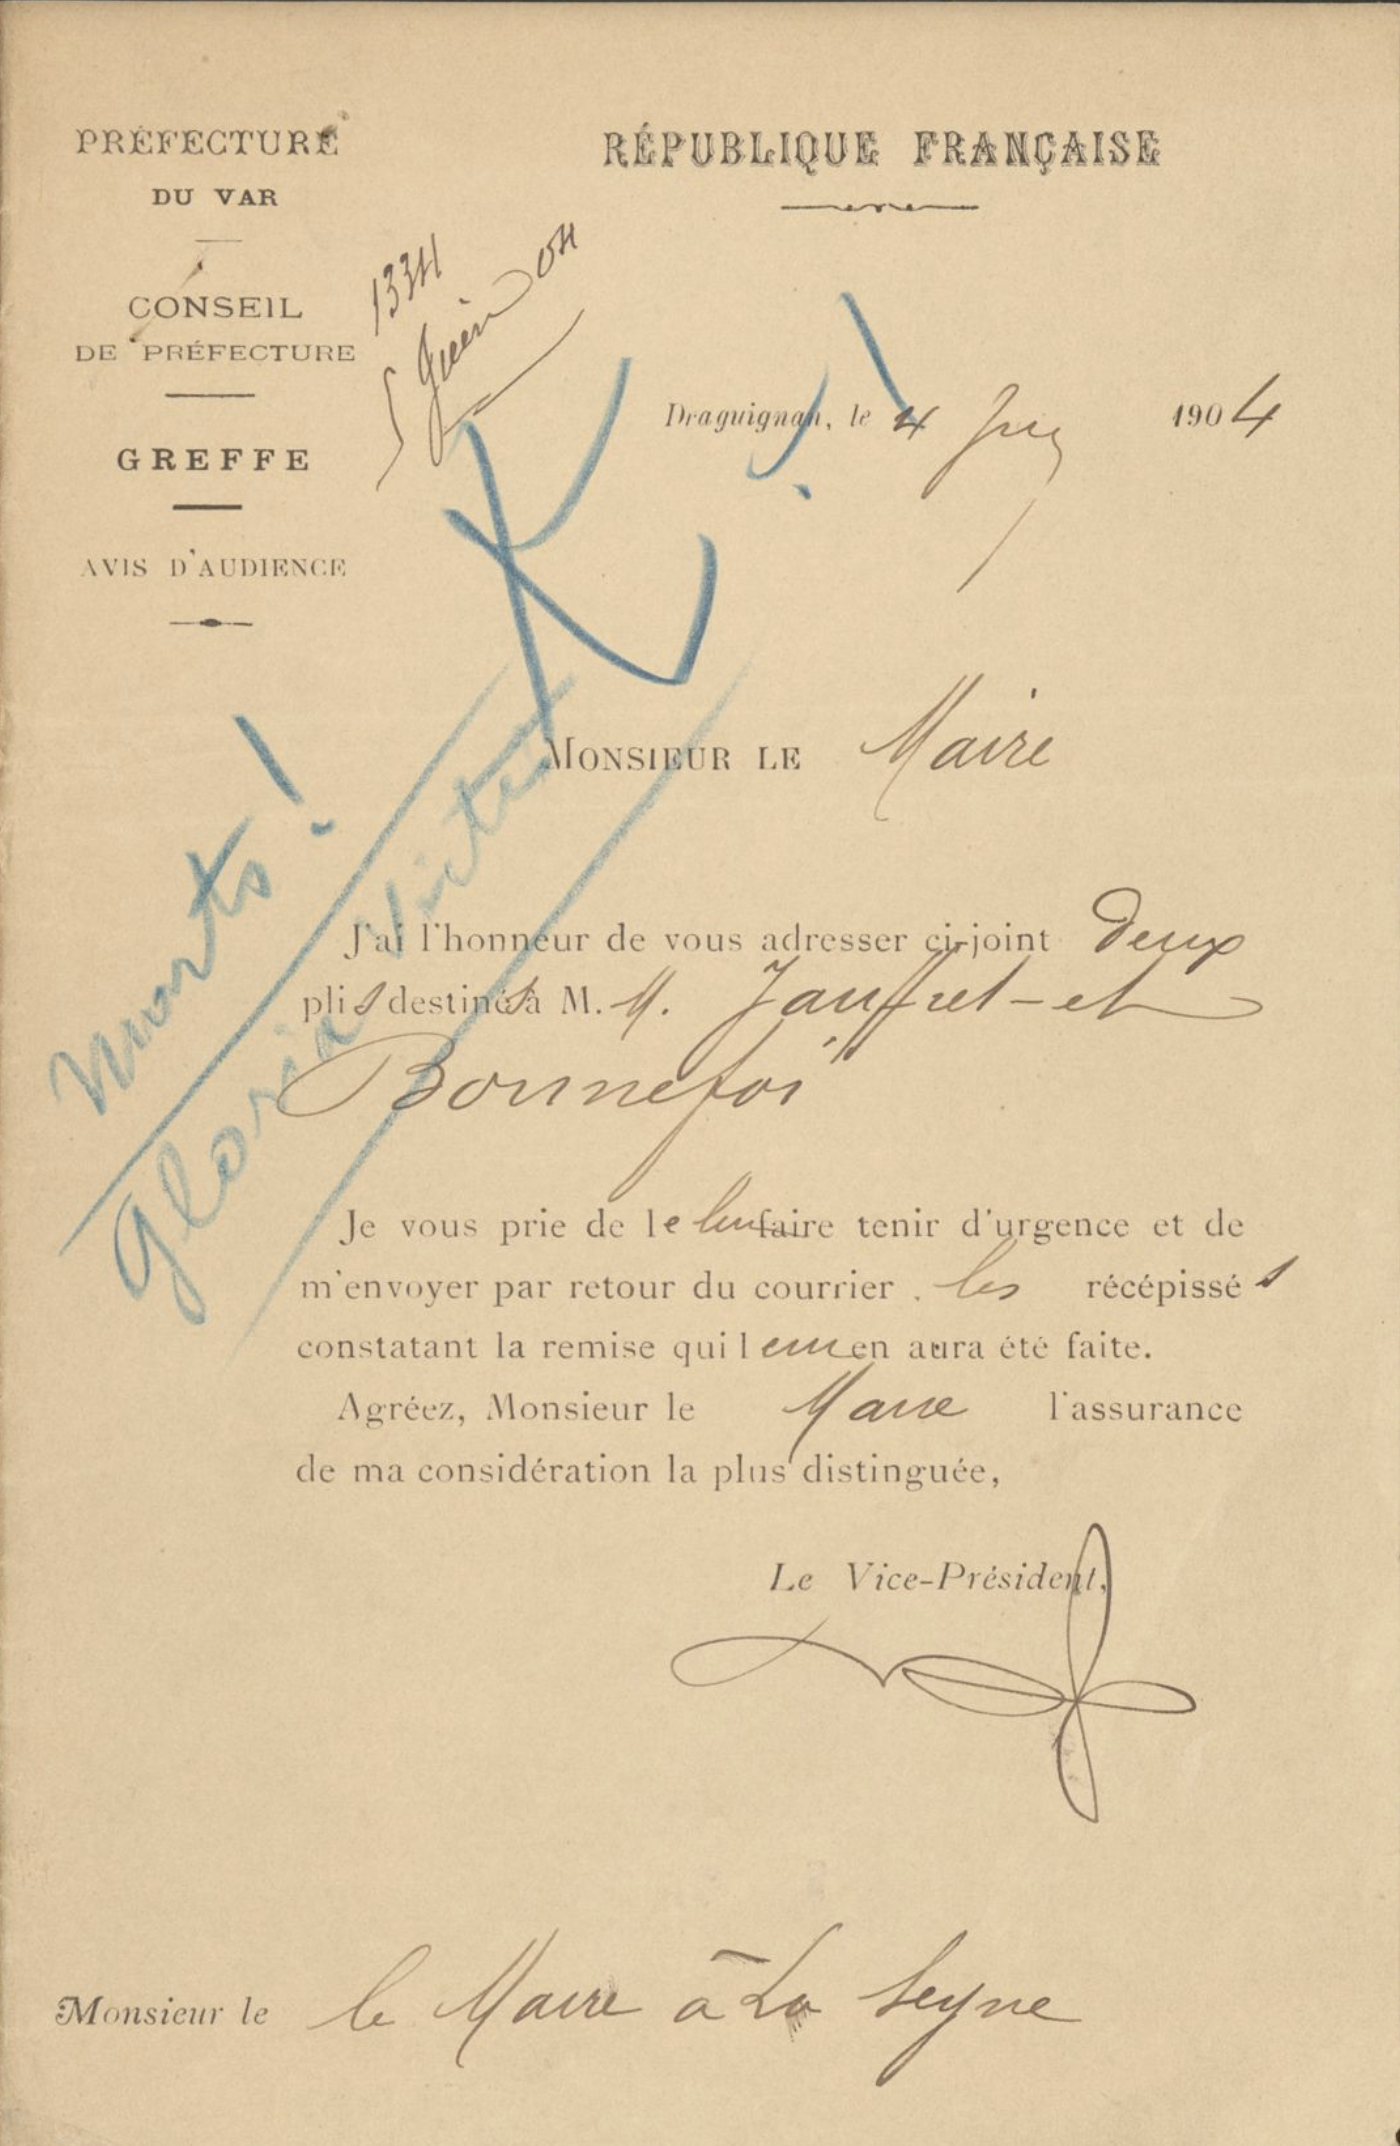 PRÉFECTURE
DU VAR
CONSEIL
DE PRÉFECTURE
GREFFE
AVIS D'AUDIENCE
RÉPUBLIQUE FRANÇAISE
1334
5 Juin 04
Draguignan, le 4 Juin 1904
K!
MONSIEUR LE Maire
morts!
Gloria Victis
J'ai l'honneur de vous adresser ci-joint deux
plis destinés à M. M. Jauffret et
Bonnefoi
Je vous prie de le leur faire tenir d'urgence et de
m'envoyer par retour du courrier. les récépissés
constatant la remise qui leur en aura été faite.
Agréez, Monsieur le Maire l'assurance
de ma considération la plus distinguée,
Le Vice-Président,
Monsieur le le Maire à La Seyne